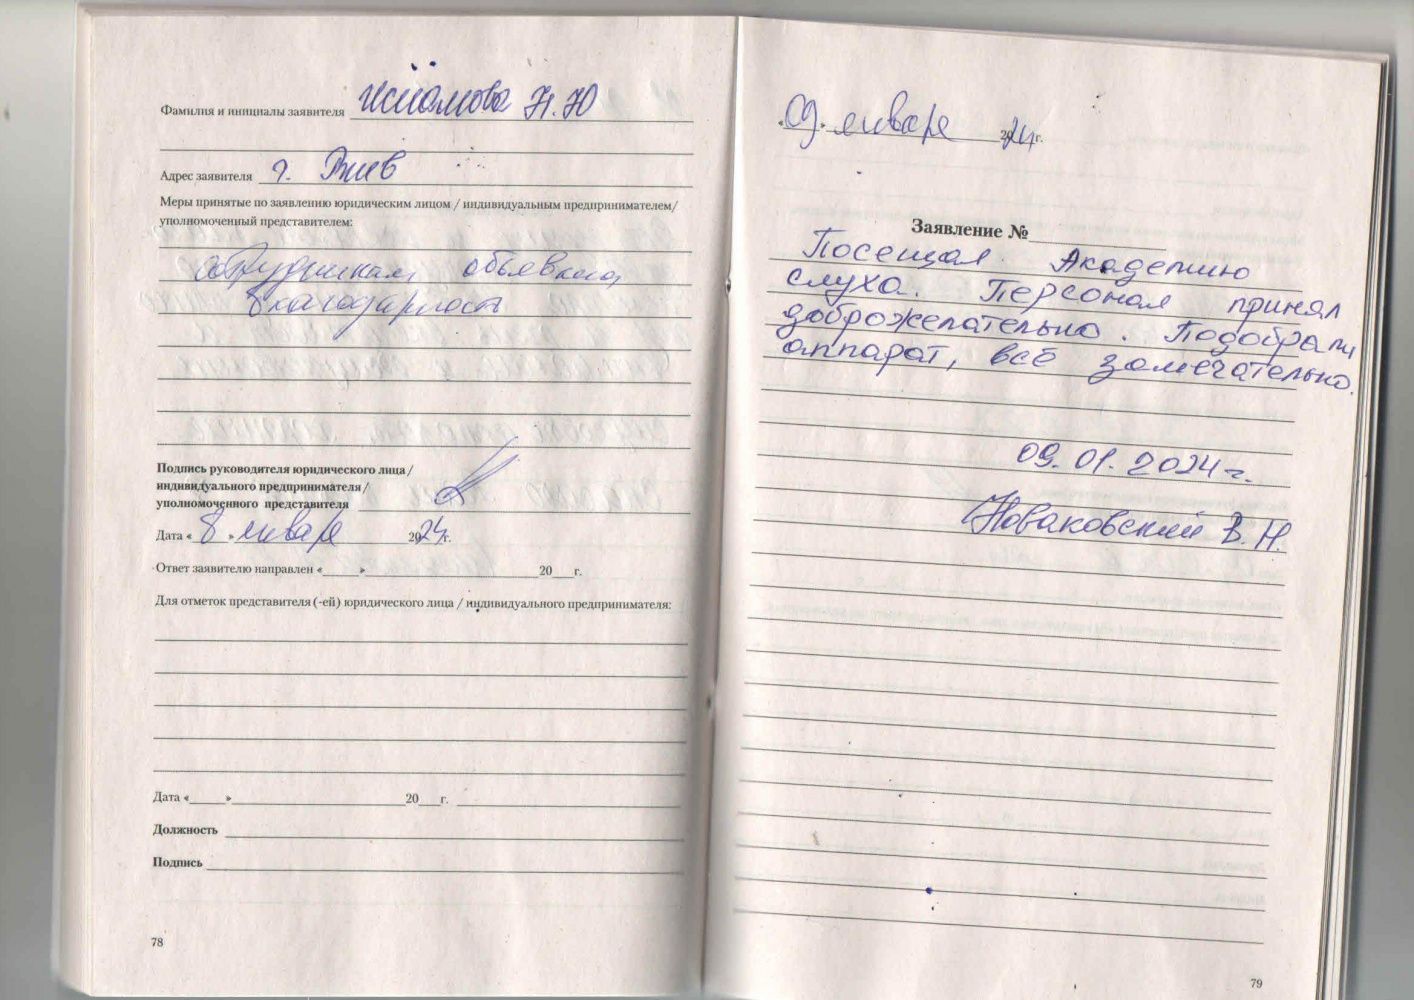 Фамилия и инициалы заявителя Исламова Н.Ю
Адрес заявителя г.
Меры принятые по заявлению юридическим лицом / индивидуальным предпринимателем/
уполномоченный представителем:
Сотрудникам объявлена
благодарность
Подпись руководителя юридического лица /
индивидуального предпринимателя /
уполномоченного представителя
Дата «8» января 2024г.
Ответ заявителю направлен «____»____ 20__г.
Для отметок представителя (-ей) юридического лица / индивидуального предпринимателя:
Дата «____»____ 20__г.
Должность
Подпись
78
«09» января 2024г.
Заявление №
Посещал Академию
слуха. Персонал принял
доброжелательно. Подобрали
аппарат, всё замечательно.
09.01.2024г.
Новаковский В.Н.
79